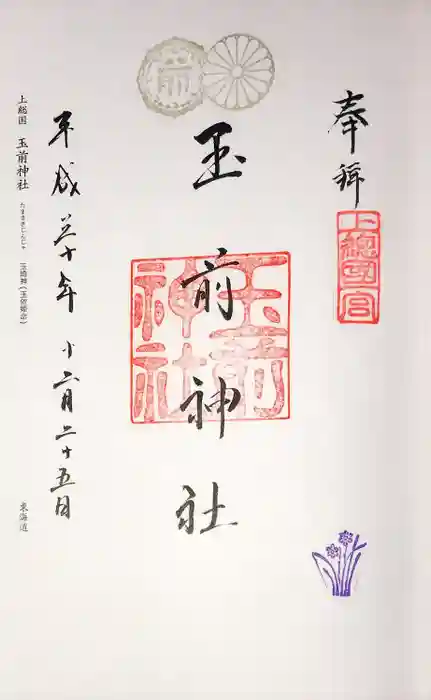 奉拝
上總國一宮
玉前神社
玉前神社
平成三十年十二月二十五日
上総国 玉前神社 たまさきじんじゃ 玉崎神(玉依姫命)
東海道